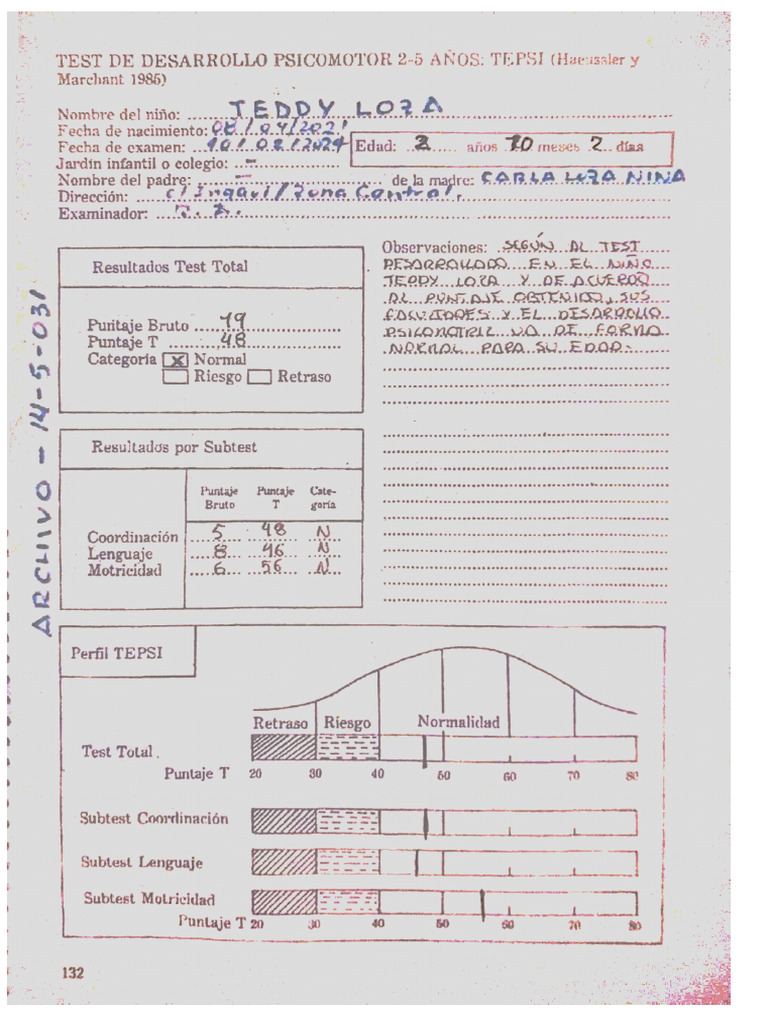 TEST DE DESARROLLO PSICOMOTOR 2-5 AÑOS: TEPSI (Haeussler y
Marchant 1985)
Nombre del niño: TEDDY LOZA
Fecha de nacimiento: 08/04/2021
Fecha de examen: 10/02/2024 Edad: 2 años 10 meses 2 días
Jardín infantil o colegio: -
Nombre del padre: - de la madre: CARLA LOZA NINA
Dirección: c/ Ingavi/Zona Central.
Examinador:
Resultados Test Total
Puntaje Bruto 19
Puntaje T 48
Categoría X Normal
Riesgo Retraso
Observaciones: SEGÚN AL TEST
DESARROLLADO EN EL NIÑO
TEDDY LOZA Y DE ACUERDO
AL PUNTAJE OBTENIDO, SUS
FACULTADES Y EL DESARROLLO
PSICOMOTRIZ VA DE FORMA
NORMAL PARA SU EDAD.
ARCHIVO - 14-5-031
Resultados por Subtest
Puntaje Puntaje Cate-
Bruto T goría
Coordinación 5 48 N
Lenguaje 8 46 N
Motricidad 6 56 N
Perfil TEPSI
Retraso Riesgo Normalidad
Test Total
Puntaje T 20 30 40 50 60 70 80
Subtest Coordinación
Subtest Lenguaje
Subtest Motricidad
Puntaje T 20 30 40 50 60 70 80
132